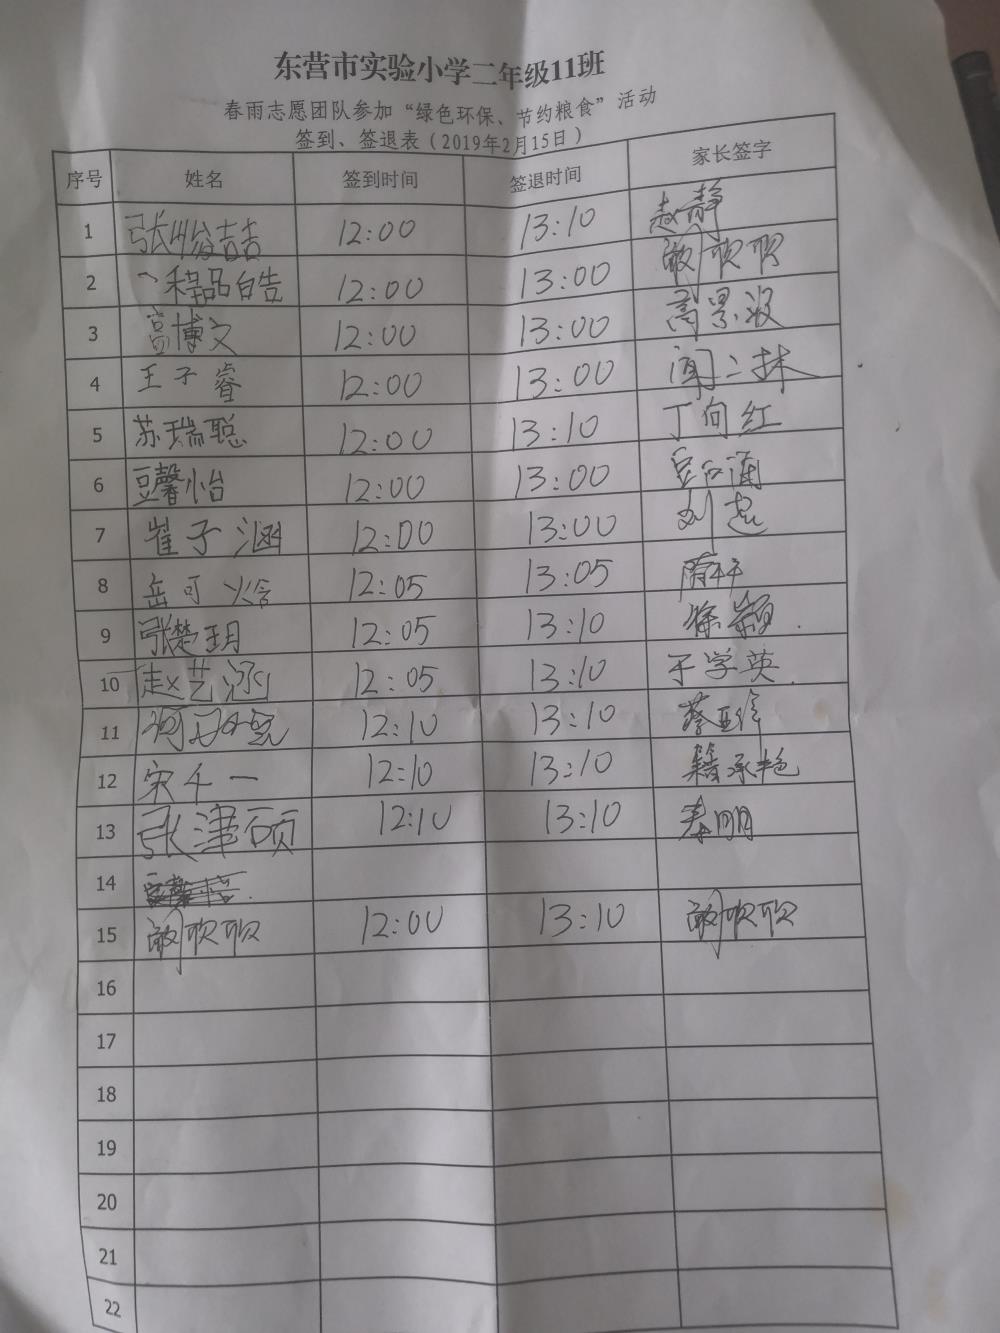 东营市实验小学二年级11班
春雨志愿团队参加“绿色环保、节约粮食”活动
签到、签退表（2019年2月15日）
序号 姓名 签到时间 签退时间 家长签字
1 张 12:00 13:10 赵静
2 程品皓 12:00 13:00
3 高博文 12:00 13:00 高景波
4 王子睿 12:00 13:00 闻二林
5 苏瑞聪 12:00 13:10 丁向红
6 豆馨怡 12:00 13:00
7 崔子涵 12:00 13:00 刘
8 岳可焓 12:05 13:05 隋
9 张楚玥 12:05 13:10 徐颖
10 赵艺涵 12:05 13:10 于学英
11 12:10 13:10 蔡亚
12 宋千一 12:10 13:10 籍承艳
13 张津硕 12:10 13:10 秦明明
14
15 12:00 13:10
16
17
18
19
20
21
22